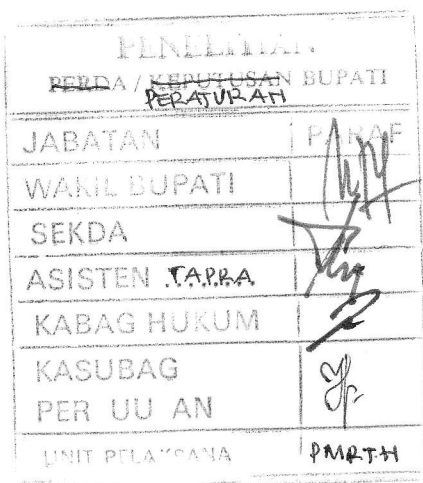 PENELITIAN
PERDA / KEPUTUSAN BUPATI
PERATURAN
JABATAN PARAF
WAKIL BUPATI
SEKDA
ASISTEN TAPRA
KABAG HUKUM
KASUBAG
PER UU AN
UNIT PELAKSANA PMRTH